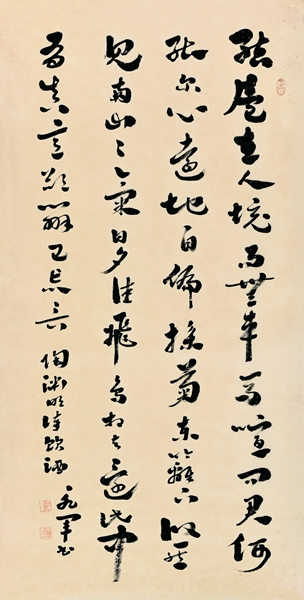 結廬在人境而無車馬喧問君何
能尔心遠地自偏採菊東籬下悠然
見南山々氣日夕佳飛鳥相与還此中
有真意欲辨已忘言 陶淵明詩飲酒